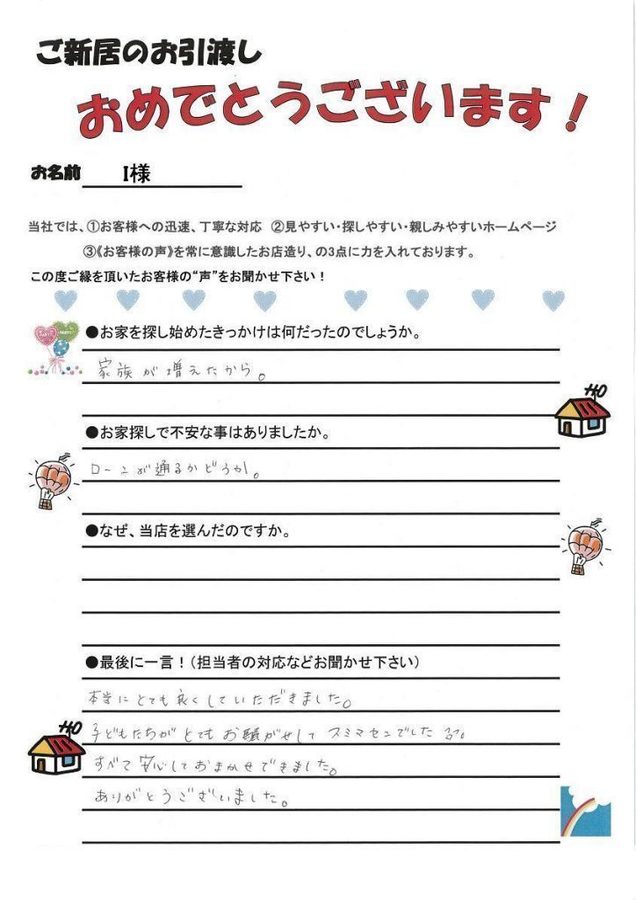 ご新居のお引渡し
おめでとうございます!
お名前 I様
当社では、①お客様への迅速、丁寧な対応 ②見やすい・探しやすい・親しみやすいホームページ
③《お客様の声》を常に意識したお店造り、の3点に力を入れております。
この度ご縁を頂いたお客様の“声”をお聞かせ下さい!
●お家を探し始めたきっかけは何だったのでしょうか。
家族が増えたから。
●お家探しで不安な事はありましたか。
ローンが通るかどうか。
●なぜ、当店を選んだのですか。
●最後に一言!(担当者の対応などお聞かせ下さい)
本当にとても良くしていただきました。
子どもたちがとてもお騒がせしてスミマセンでした
すべて安心しておまかせできました。
ありがとうございました。